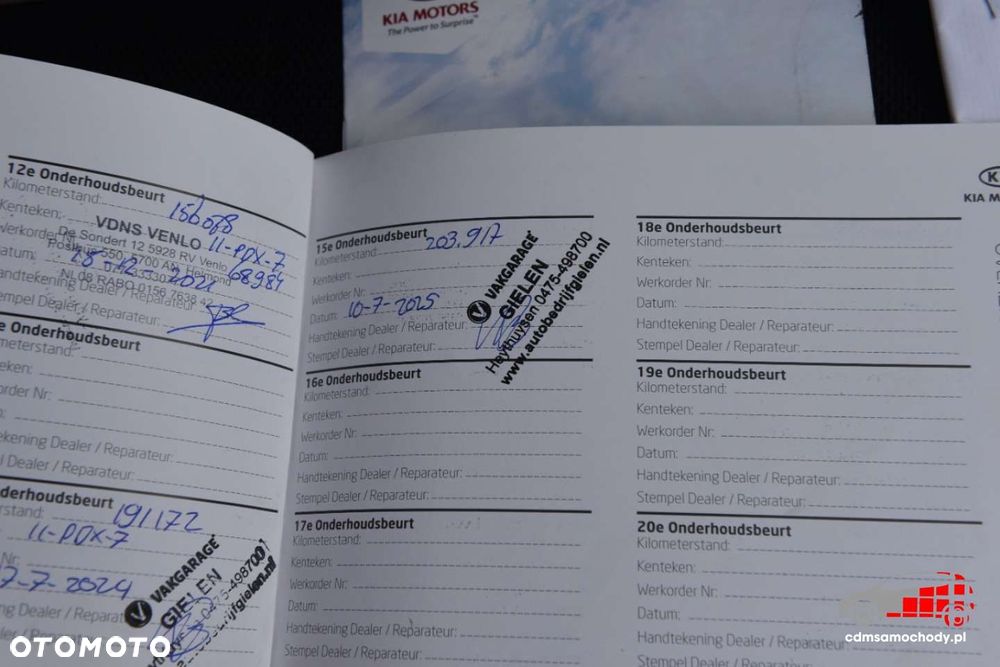 KIA MOTORS
The Power to Surprise™
12e Onderhoudsbeurt
Kilometerstand: 156078
Kenteken: 11-PDX-7
VDNS VENLO
De Sondert 12 5928 RV Venlo
Postbus 550, 5700 AN Helmond
Werkorder Nr: 68984
Datum:
NL08 RABO 0156 7638 42
Handtekening Dealer / Reparateur:
Stempel Dealer / Reparateur:
e Onderhoudsbeurt
meterstand:
eken:
order Nr:
ekening Dealer / Reparateur:
el Dealer / Reparateur:
derhoudsbeurt
stand: 191172
11-PDX-7
Nr:
7-7-2024
ing Dealer / Reparateur:
VAKGARAGE
GIELEN
0475-498700
15e Onderhoudsbeurt
Kilometerstand: 203.917
Kenteken:
Werkorder Nr:
Datum: 10-7-2025
Handtekening Dealer / Reparateur:
Stempel Dealer / Reparateur:
VAKGARAGE
GIELEN
Heythuysen 0475-498700
www.autobedrijfgielen.nl
16e Onderhoudsbeurt
Kilometerstand:
Kenteken:
Werkorder Nr:
Datum:
Handtekening Dealer / Reparateur:
Stempel Dealer / Reparateur:
17e Onderhoudsbeurt
Kilometerstand:
Kenteken:
Werkorder Nr:
Datum:
Handtekening Dealer / Reparateur:
Stempel Dealer / Reparateur:
KIA M
18e Onderhoudsbeurt
Kilometerstand:
Kenteken:
Werkorder Nr:
Datum:
Handtekening Dealer / Reparateur:
Stempel Dealer / Reparateur:
19e Onderhoudsbeurt
Kilometerstand:
Kenteken:
Werkorder Nr:
Datum:
Handtekening Dealer / Reparateur:
Stempel Dealer / Reparateur:
20e Onderhoudsbeurt
Kilometerstand:
Kenteken:
Werkorder Nr:
Datum:
Handtekening Dealer
Stempel Dealer / Re
OTOMOTO
cdmsamochody.pl